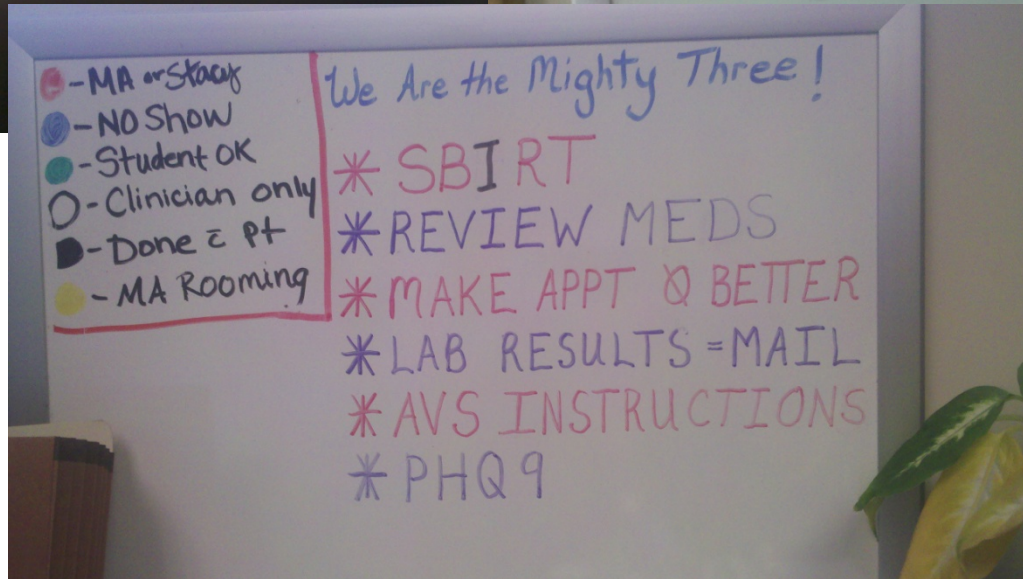 - MA or Stacy
- NO Show
- Student OK
- Clinician only
- Done c̄ pt
- MA Rooming
We Are the Mighty Three!
* SBIRT
* REVIEW MEDS
* MAKE APPT Ø BETTER
* LAB RESULTS = MAIL
* AVS INSTRUCTIONS
* PHQ9